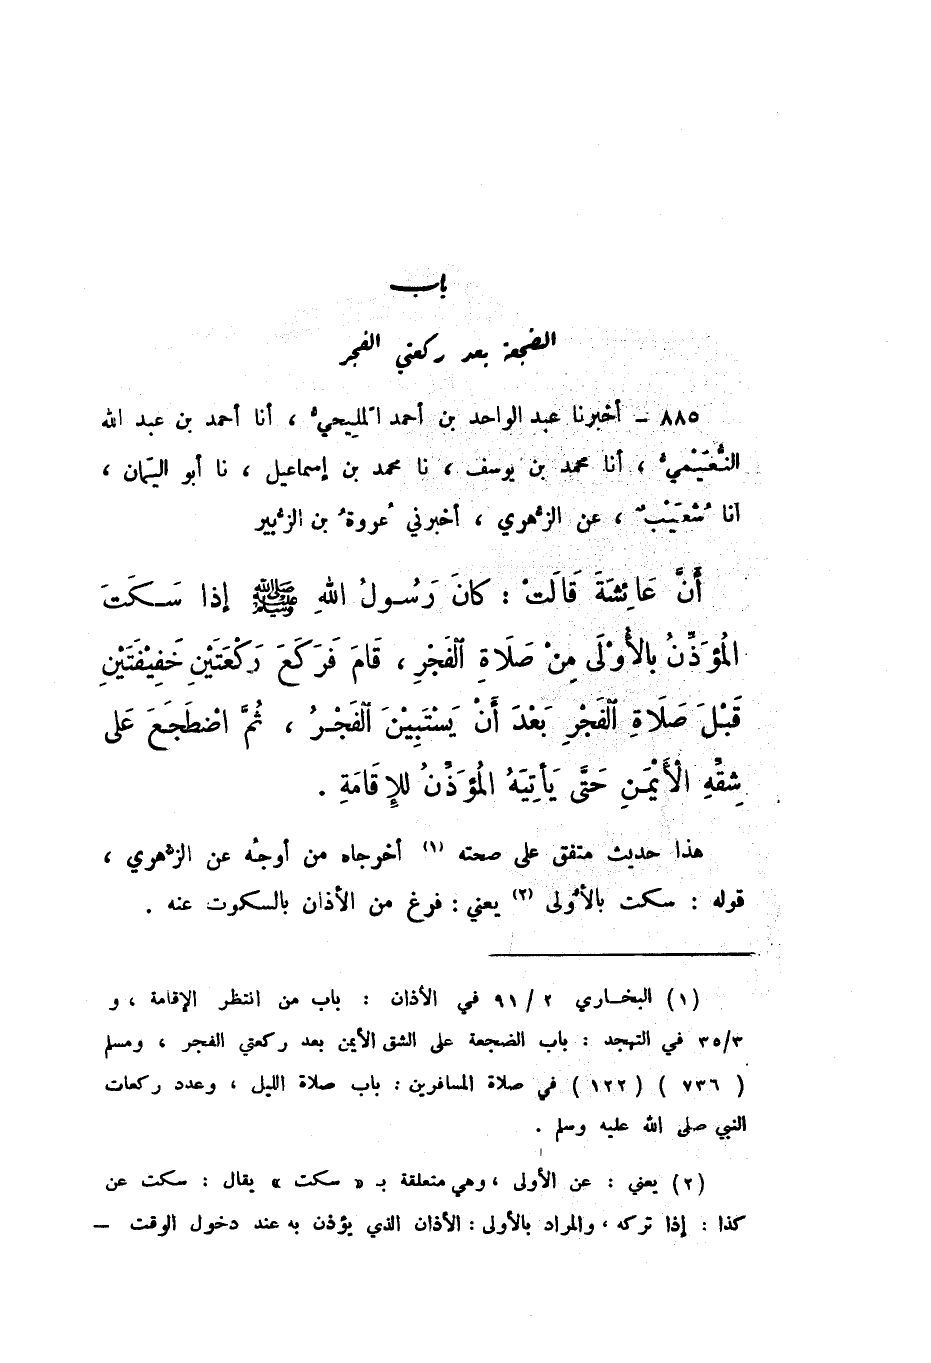 باب
الضجعة بعد ركعتي الفجر
٨٨٥ – أخبرنا عبد الواحد بن أحمد المليحيُّ ، أنا أحمد بن عبد الله
النُّعَيْميُّ ، أنا محمد بن يوسف ، نا محمد بن إسماعيل ، نا أبو اليَمان ،
أنا شُعَيْبٌ ، عن الزُّهري ، أخبرني عُروةُ بن الزُّبير
أَنَّ عَائِشَةَ قَالَتْ : كانَ رَسُولُ اللهِ ﷺ إذا سَكَتَ
المُؤَذِّنُ بالأُوْلَى مِنْ صَلَاةِ الفَجْرِ ، قَامَ فَرَكَعَ رَكْعَتَيْنِ خَفِيْفَتَيْنِ
قَبْلَ صَلَاةِ الفَجْرِ بَعْدَ أَنْ يَسْتَبِيْنَ الفَجْرُ ، ثُمَّ اضْطَجَعَ عَلى
شِقِّهِ الْأَيْمَنِ حَتَّى يَأْتِيَهُ المُؤَذِّنُ للإِقَامَةِ .
هذا حديث متفق على صحته (١) أخرجاه من أوجُه عن الزُّهري ،
قوله : سكت بالأُولى (٢) يعني : فرغ من الأذان بالسكوت عنه .
(١) البخاري ٢ / ٩١ في الأذان : باب من انتظر الإقامة ، و
٣٥/٣ في التهجد : باب الضجعة على الشق الأيمن بعد ركعتي الفجر ، ومسلم
( ٧٣٦ ) ( ١٢٢ ) في صلاة المسافرين : باب صلاة الليل ، وعدد ركعات
النبي صلى الله عليه وسلم .
(٢) يعني : عن الأولى ، وهي متعلقة بـ « سكت » يقال : سكت عن
كذا : إذا تركه ، والمراد بالأولى : الأذان الذي يؤذن به عند دخول الوقت –